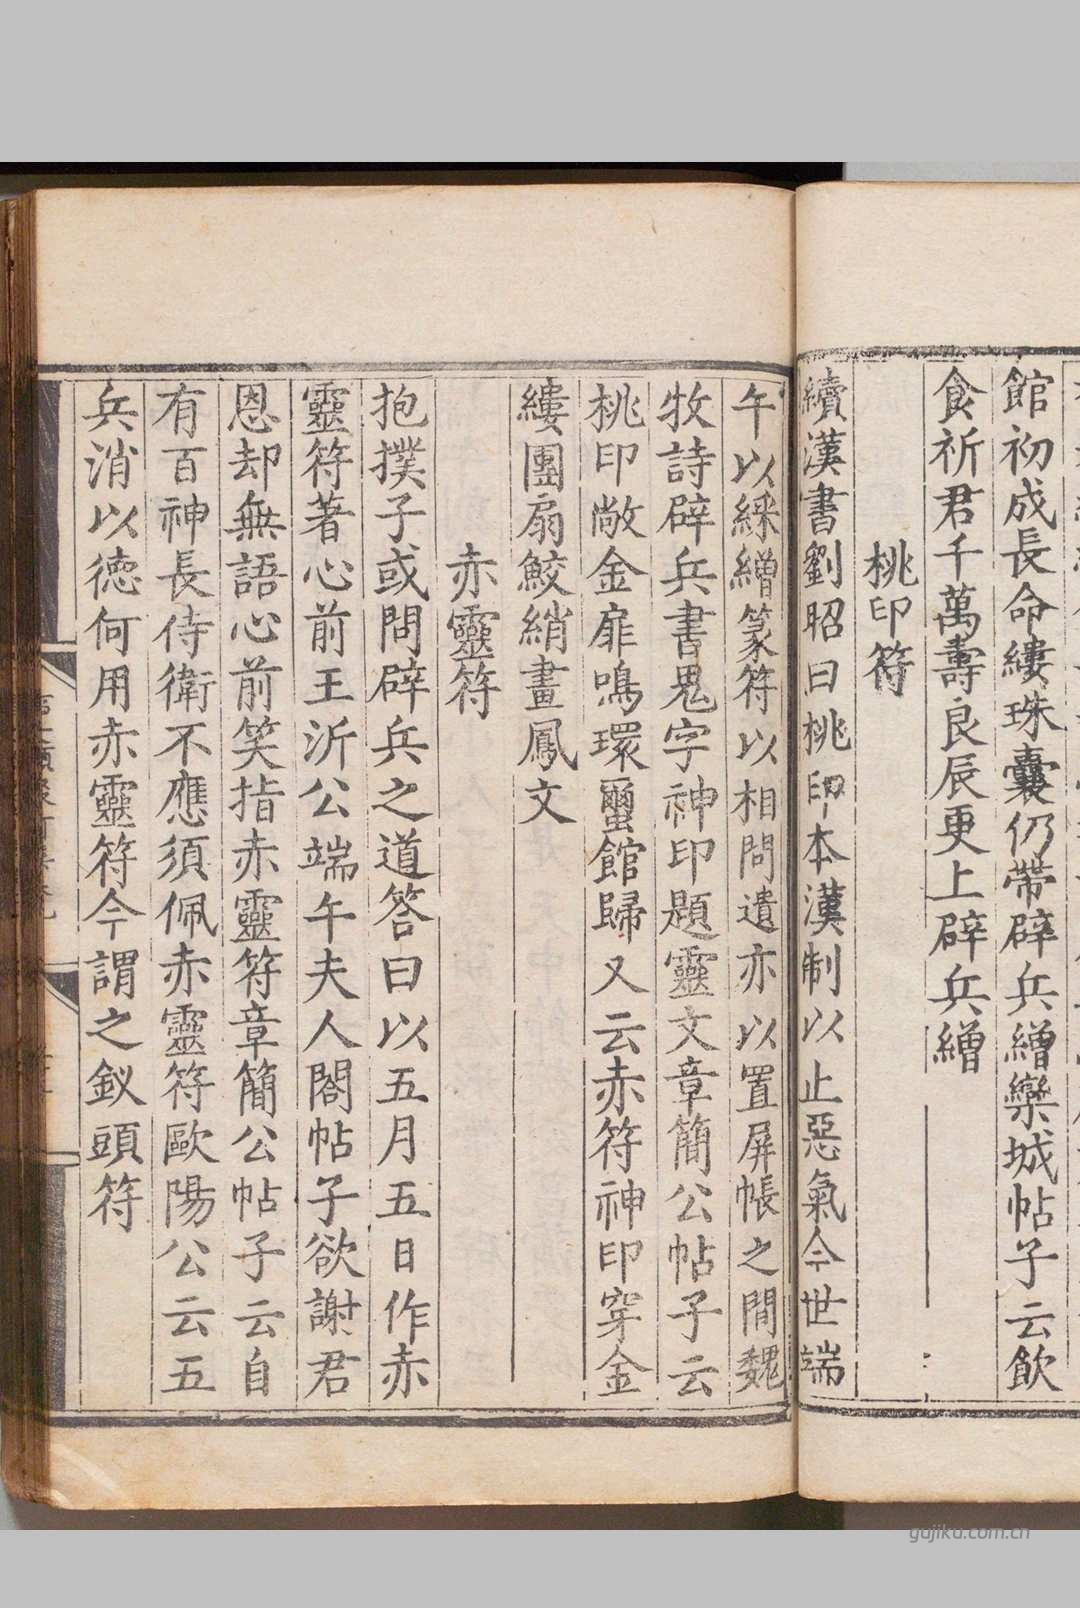 館初成長命縷珠囊仍帶辟兵繒欒城帖子云飲
食祈君千萬壽良辰更上辟兵繒
桃印符
續漢書劉昭曰桃印本漢制以止惡氣今世端
午以綵繒篆符以相問遺亦以置屏帳之間魏
牧詩辟兵書鬼字神印題靈文章簡公帖子云
桃印敞金扉鳴環璽館歸又云赤符神印穿金
縷團扇鮫綃畫鳳文
赤靈符
抱撲子或問辟兵之道答曰以五月五日作赤
靈符著心前王沂公端午夫人閤帖子欲謝君
恩却無語心前笑指赤靈符章簡公帖子云自
有百神長侍衛不應須佩赤靈符歐陽公云五
兵消以德何用赤靈符今謂之釵頭符
gajiku.com.cn